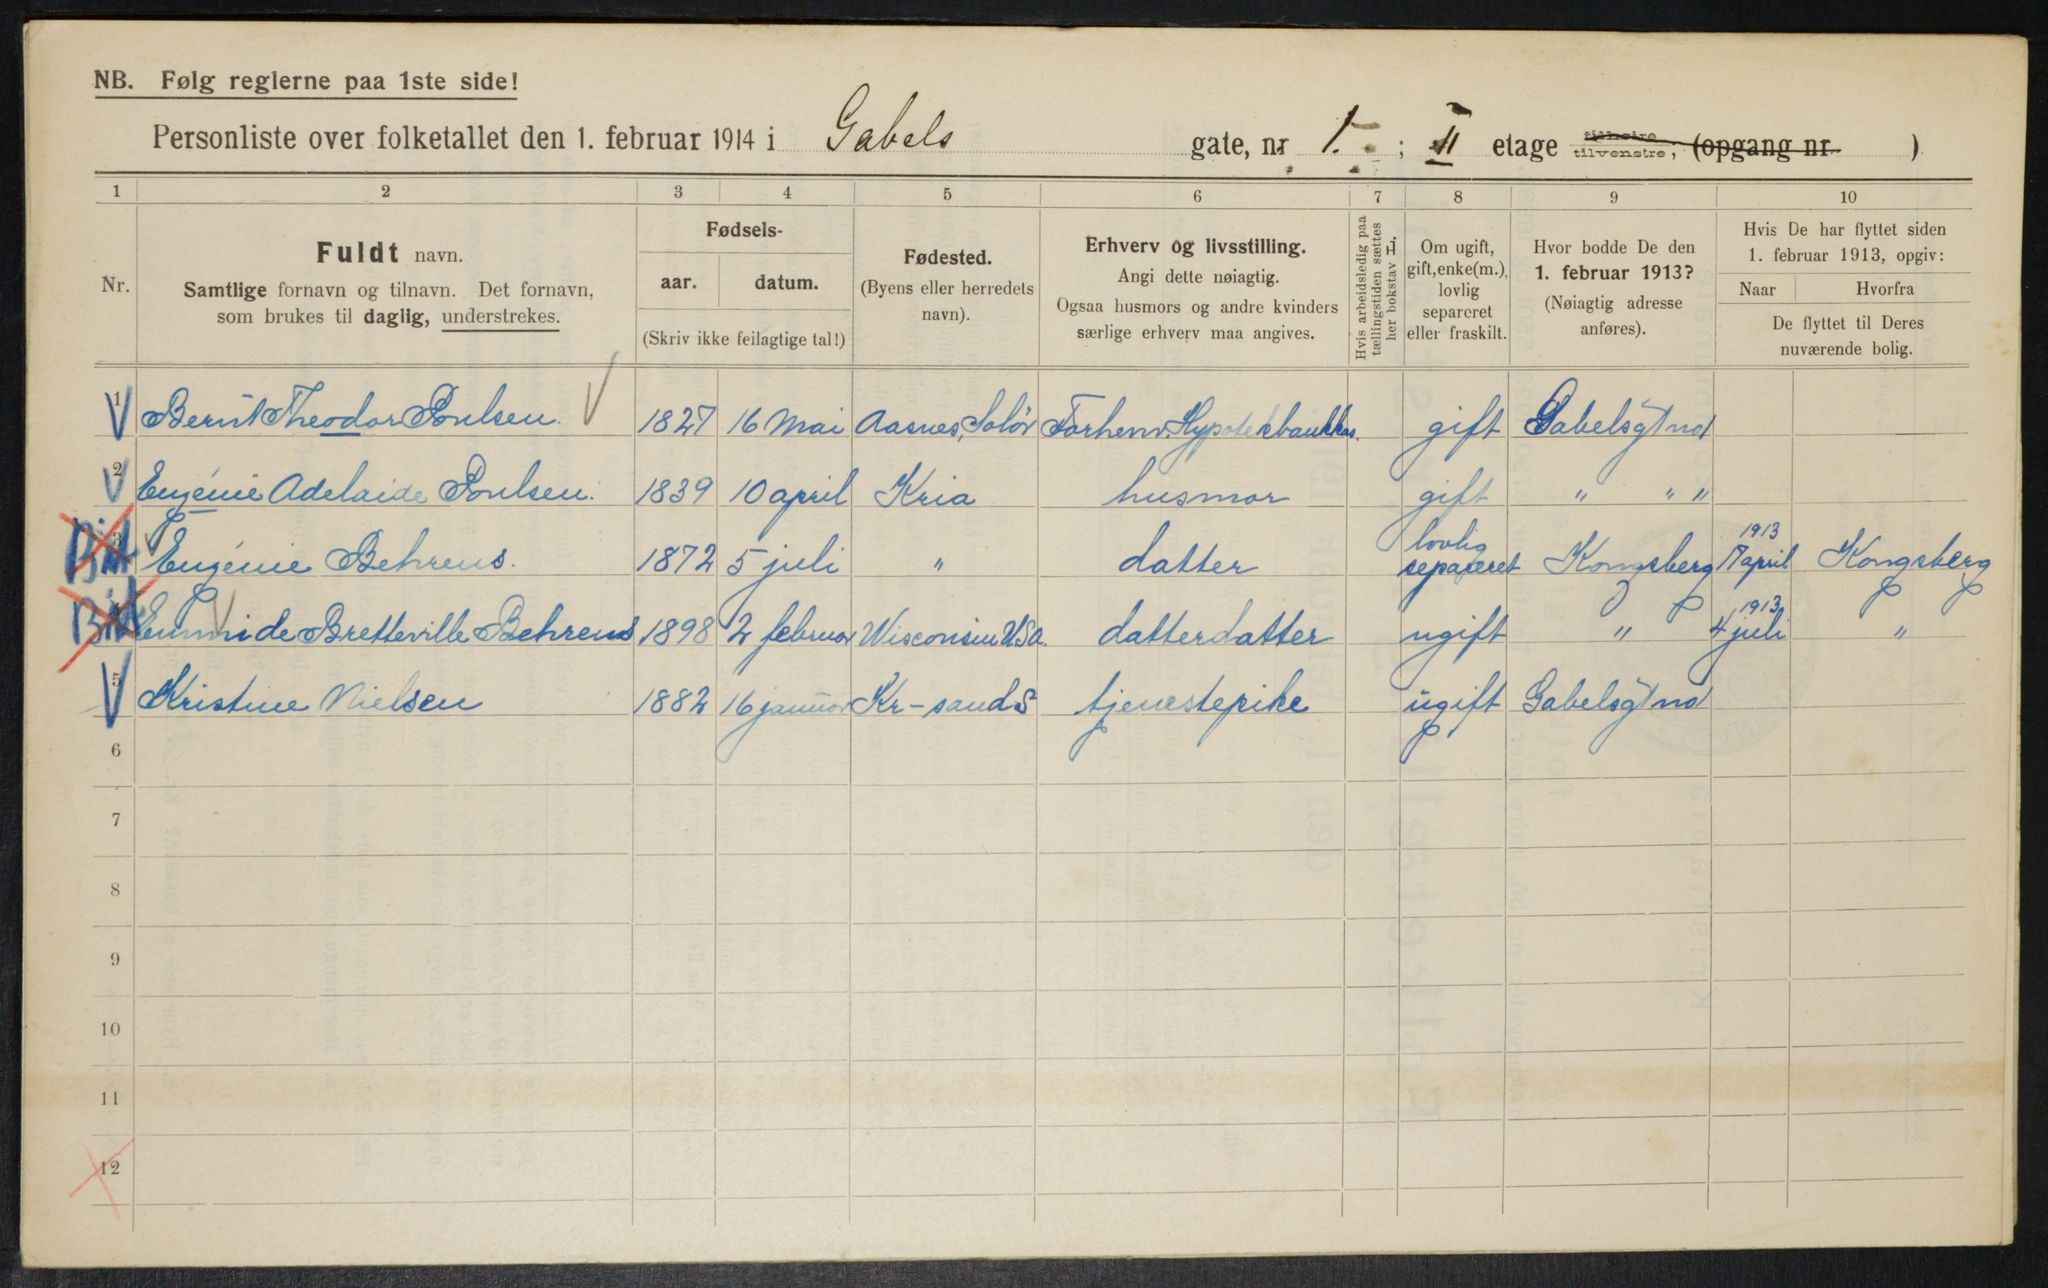 NB. Følg reglerne paa 1ste side!
Personliste over folketallet den 1. februar 1914 i Gabels gate, nr 1. ; II etage tilhøire tilvenstre, (opgang nr )
1 2 3 4 5 6 7 8 9 10
Nr.
Fuldt navn.
Samtlige fornavn og tilnavn. Det fornavn,
som brukes til daglig, understrekes.
Fødsels-
aar. datum.
(Skriv ikke feilagtige tal!)
Fødested.
(Byens eller herredets
navn).
Erhverv og livsstilling.
Angi dette nøiagtig.
Ogsaa husmors og andre kvinders
særlige erhverv maa angives.
Hvis arbeidsledig paa
tællingstiden sættes
her bokstav L.
Om ugift,
gift, enke(m.),
lovlig
separeret
eller fraskilt.
Hvor bodde De den
1. februar 1913?
(Nøiagtig adresse
anføres).
Hvis De har flyttet siden
1. februar 1913, opgiv:
Naar Hvorfra
De flyttet til Deres
nuværende bolig.
1 Bernt Theodor Poulsen. 1827 16 Mai Aasnes, Solør Forhenv. Hypotekbankkas. gift Gabelsgt no 1
2 Eugénie Adelaide Poulsen. 1839 10 april Kria husmor gift " " "
3 Eugénie Behrens. 1872 5 juli " datter lovlig separeret Kongsberg 1913 17 april Kongsberg
4 Emmi de Bretteville Behrens 1898 2 februar Wisconsin U.S.A. datterdatter ugift " 1913 4 juli "
5 Kristine Nielsen 1882 16 januar Kr-sand S tjenestepike ugift Gabelsgt no 1
6
7
8
9
10
11
12